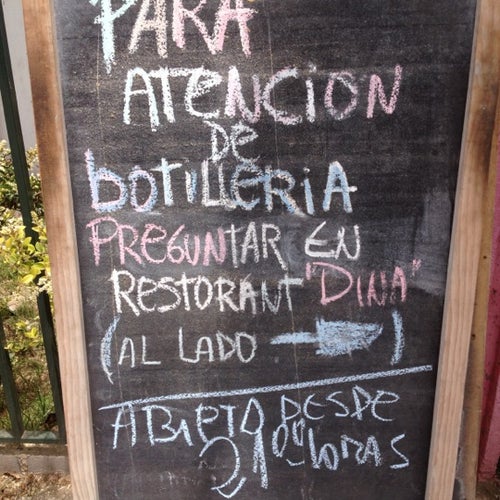 PARA
ATENCION
DE
botillERIA
PREGUNTAR EN
RESTORANT "DINA"
(AL LADO → )
ABIETO DESDE
21 00 horas